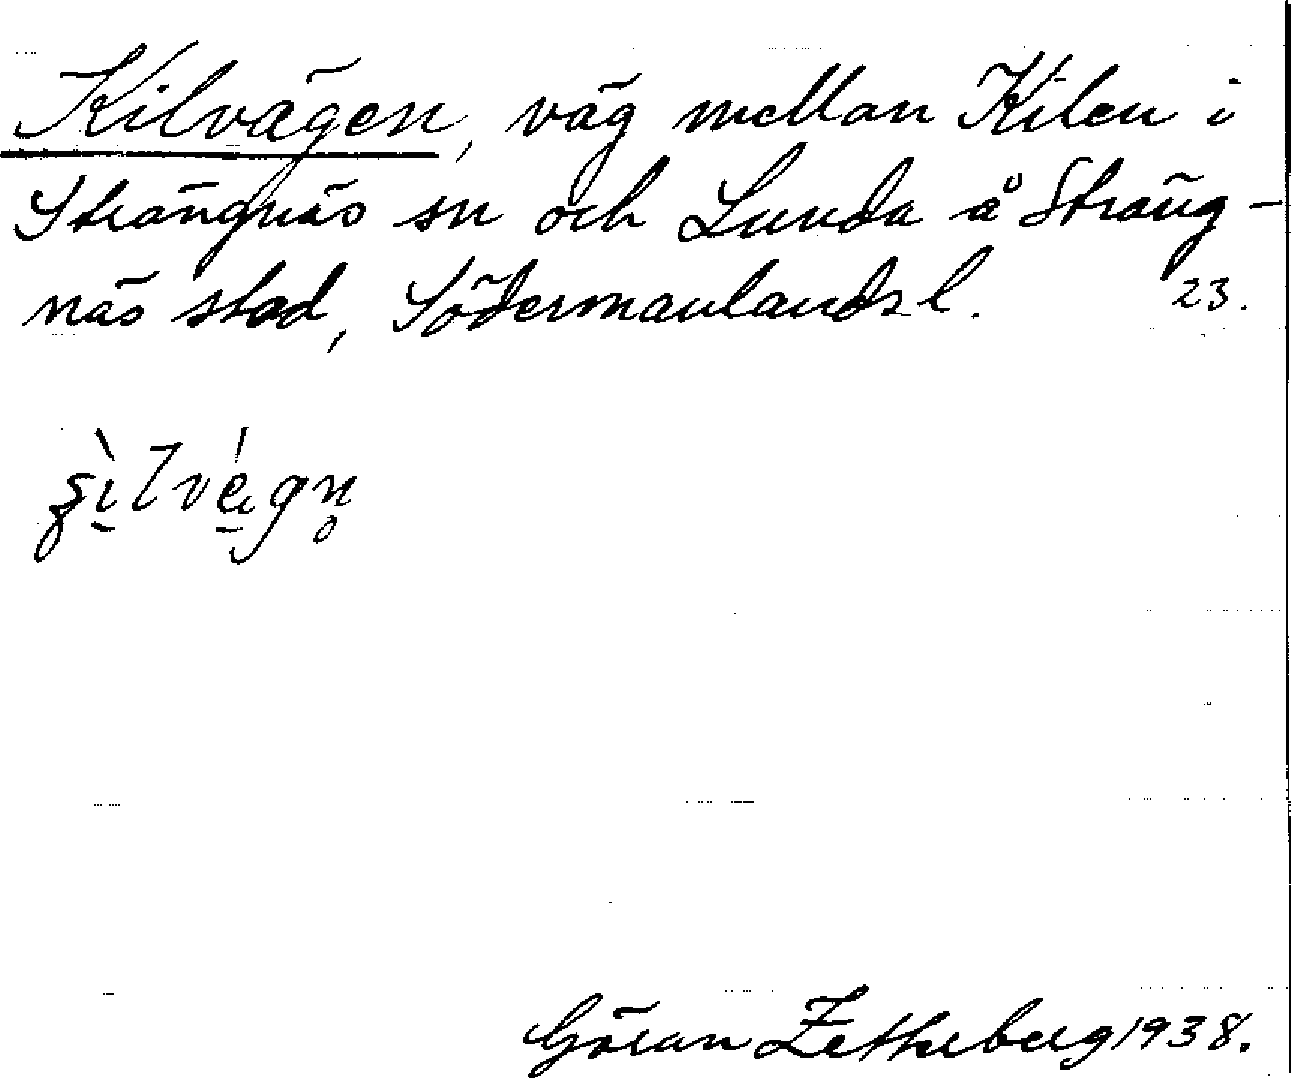 Kilvägen, väg mellan Kilen i
Strängnäs sn och Lunda å Sträng-
näs stad, Södermanlands l. 23.
Göran Zetherberg 1938.